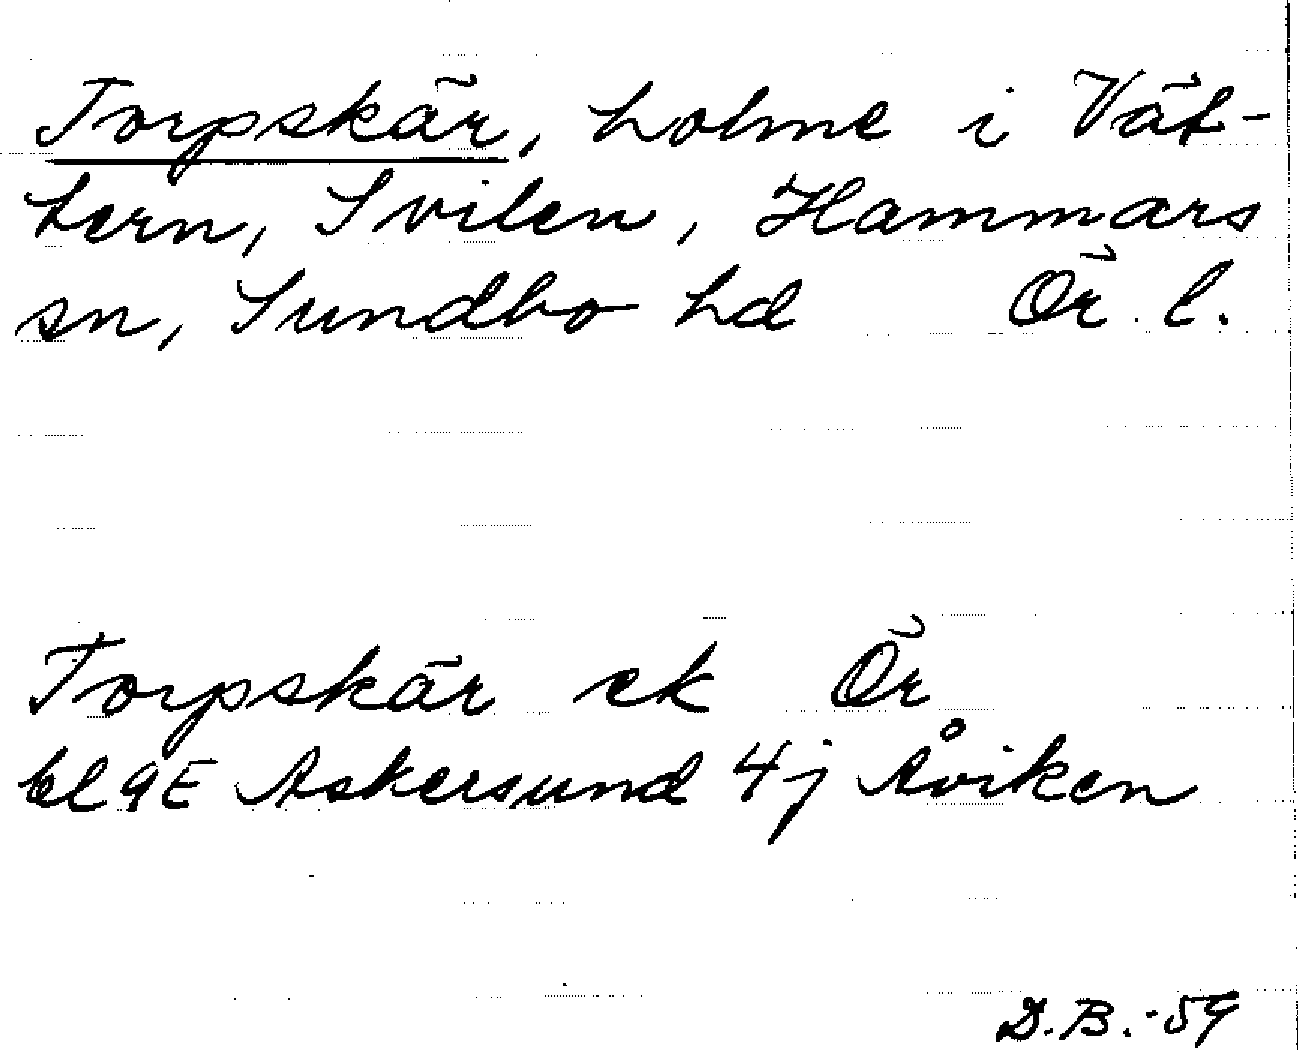 Torpskär, holme i Vät-
tern, Svilen, Hammars
sn, Sundbo hd Ör. l.
Torpskär ek Ör
bl 9E Askersund 4j Åviken
D.B.-59